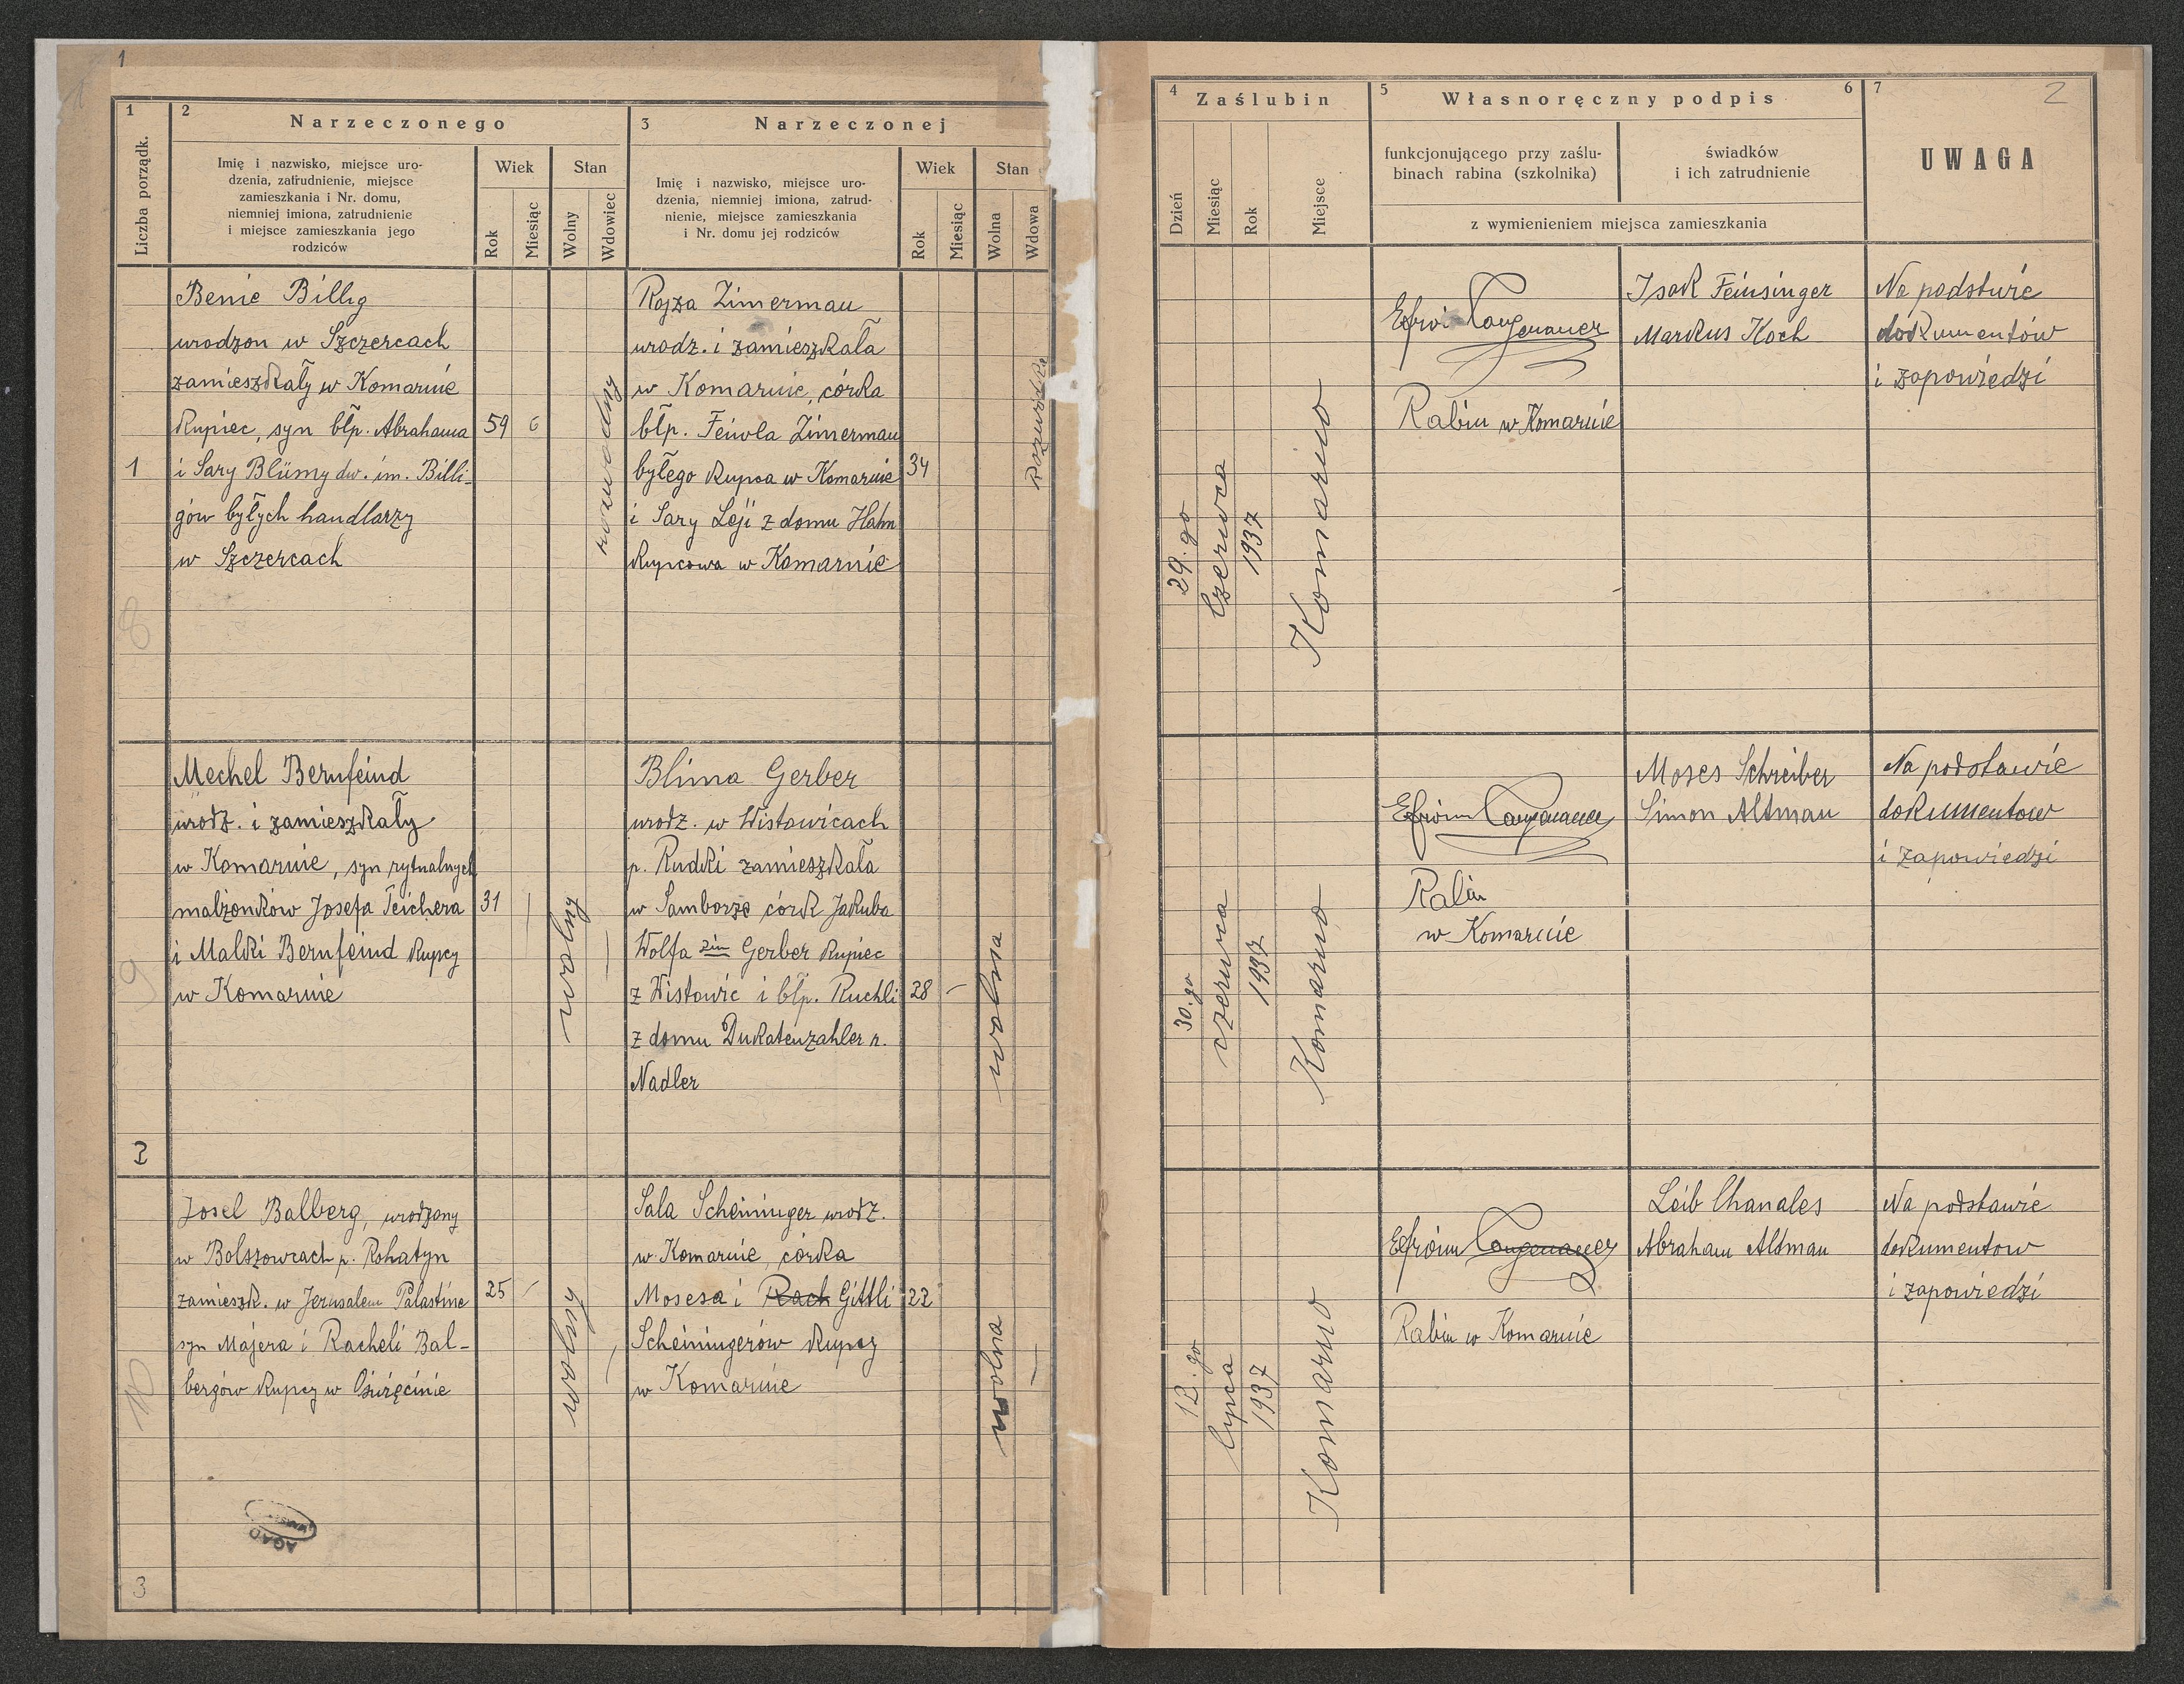 1
1
2
Narzeczonego
3
Narzeczonej
Liczba porządk.
Imię i nazwisko, miejsce uro-
dzenia, zatrudnienie, miejsce
zamieszkania i Nr. domu,
niemniej imiona, zatrudnienie
i miejsce zamieszkania jego
rodziców
Wiek
Stan
Rok
Miesiąc
Wolny
Wdowiec
Imię i nazwisko, miejsce uro-
dzenia, niemniej imiona, zatrud-
nienie, miejsce zamieszkania
i Nr. domu jej rodziców
Wiek
Stan
Rok
Miesiąc
Wolna
Wdowa
1
8
Benie Billig
urodzon w Szczercach
zamieszkały w Komarnie
kupiec, syn błp. Abrahama
i Sary Blümy dw. im. Billi-
gów byłych handlarzy
w Szczercach
59 6
rozwodny
Rojza Zimerman
urodz. i zamieszkała
w Komarnie, córka
błp. Feiwla Zimerman
byłego kupca w Komarnie
i Sary Leji z domu Hahn
kupcowa w Komarnie
34
2
9
Mechel Bernfeind
urodz. i zamieszkały
w Komarnie, syn rytualnych
małżonków Josefa Teichera
i Malki Bernfeind kupcy
w Komarnie
31
wolny
Blima Gerber
urodz. w Wistowicach
p. Rudki zamieszkała
w Samborze córk Jakuba
Wolfa zim Gerber kupiec
z Wistowic i błp. Ruchli
z domu Dukatenzahler r.
Nadler
28 -
wolna
3
10
Josel Balberg, urodzony
w Bolszowcach p. Rohatyn
zamieszk. w Jerusalem Palastine
syn Majera i Racheli Bal-
bergów kupcy w Oświęcinie
25 -
wolny
Sala Scheininger urodz.
w Komarnie, córka
Mosesa i Rach Gittli
Scheiningerów kupcy
w Komarnie
22
wolna
AGAD
4
Zaślubin
5
Własnoręczny podpis
6
7
2
Dzień
Miesiąc
Rok
Miejsce
funkcjonującego przy zaślu-
binach rabina (szkolnika)
świadków
i ich zatrudnienie
z wymienieniem miejsca zamieszkania
UWAGA
29. go
Czerwca
1937
Komarno
Rabin w Komarnie
Isak Feinsinger
Markus Koch
Na podstwie
dokumentów
i zapowiedzi
30. go
czerwca
1937
Komarno
Efroim
Rabin
w Komarnie
Moses Schreiber
Simon Altman
Na podstawie
dokumentow
i zapowiedzi
12. go
lipca
1937
Komarno
Efroim
Rabin w Komarnie
Leib Chanales
Abraham Altman
Na podstawie
dokumentow
i zapowiedzi